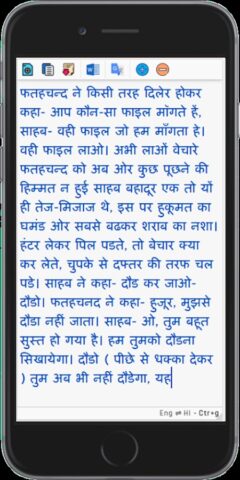 फतहचन्द ने किसी तरह दिलेर होकर
कहा- आप कौन-सा फाइल माँगते हें,
साहब- वही फाइल जो हम माँगता हे।
वही फाइल लाओ। अभी लाओं वेचारे
फतहचन्द को अब ओर कुछ पूछने की
हिम्मत न हुई साहब बहादूर एक तो यों
ही तेज-मिजाज थे, इस पर हुकूमत का
घमंड ओर सबसे बढकर शराब का नशा।
हंटर लेकर पिल पडते, तो बेचार क्या
कर लेते, चुपके से दफ्तर की तरफ चल
पडे। साहब ने कहा- दौड कर जाओ-
दौडो। फतहचनद ने कहा- हुजूर, मुझसे
दौडा नहीं जाता। साहब- ओ, तुम बहूत
सुस्त हो गया है। हम तुमको दौडना
सिखायेगा। दौडो ( पीछे से धक्का देकर
) तुम अब भी नहीं दौडेगा, यह
Eng ⇌ Hi - Ctr+g